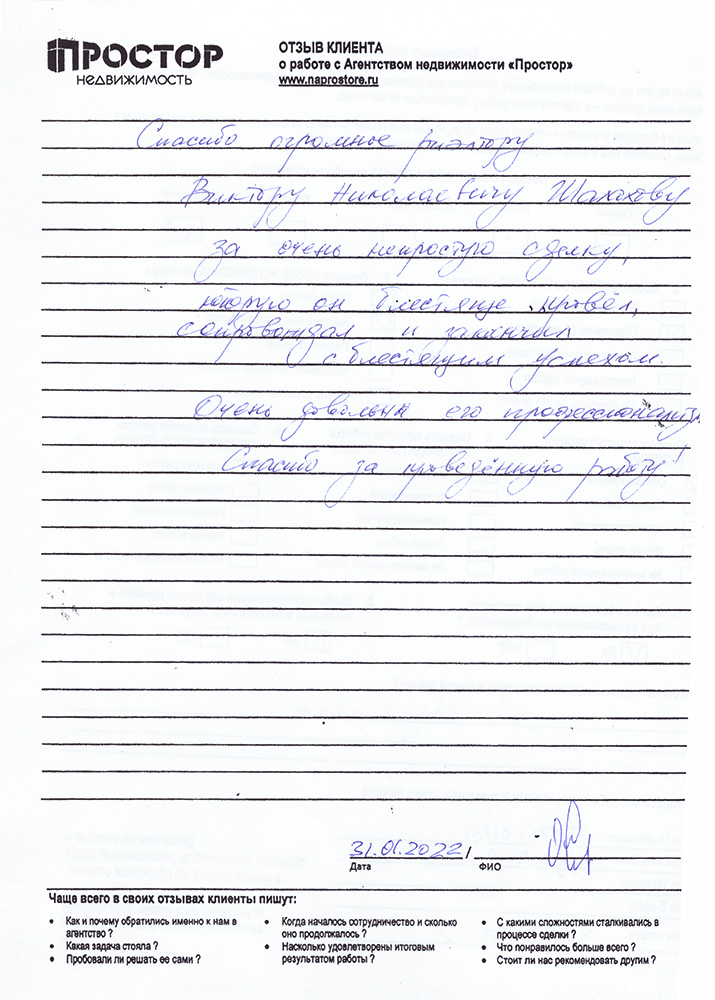 ПРОСТОР
НЕДВИЖИМОСТЬ
ОТЗЫВ КЛИЕНТА
о работе с Агентством недвижимости «Простор»
www.naprostore.ru
Спасибо огромное риэлтору
Виктору Николаевичу Малахову
за очень непростую сделку,
которую он блестяще провёл,
сопровождал и закончил
с блестящим успехом.
Очень довольны его профессионализм.
Спасибо за проведённую работу!
31.01.2022
Дата
/ ФИО
Чаще всего в своих отзывах клиенты пишут:
• Как и почему обратились именно к нам в
агентство ?
• Какая задача стояла ?
• Пробовали ли решать ее сами ?
• Когда началось сотрудничество и сколько
оно продолжалось ?
• Насколько удовлетворены итоговым
результатом работы ?
• С какими сложностями сталкивались в
процессе сделки ?
• Что понравилось больше всего ?
• Стоит ли нас рекомендовать другим ?